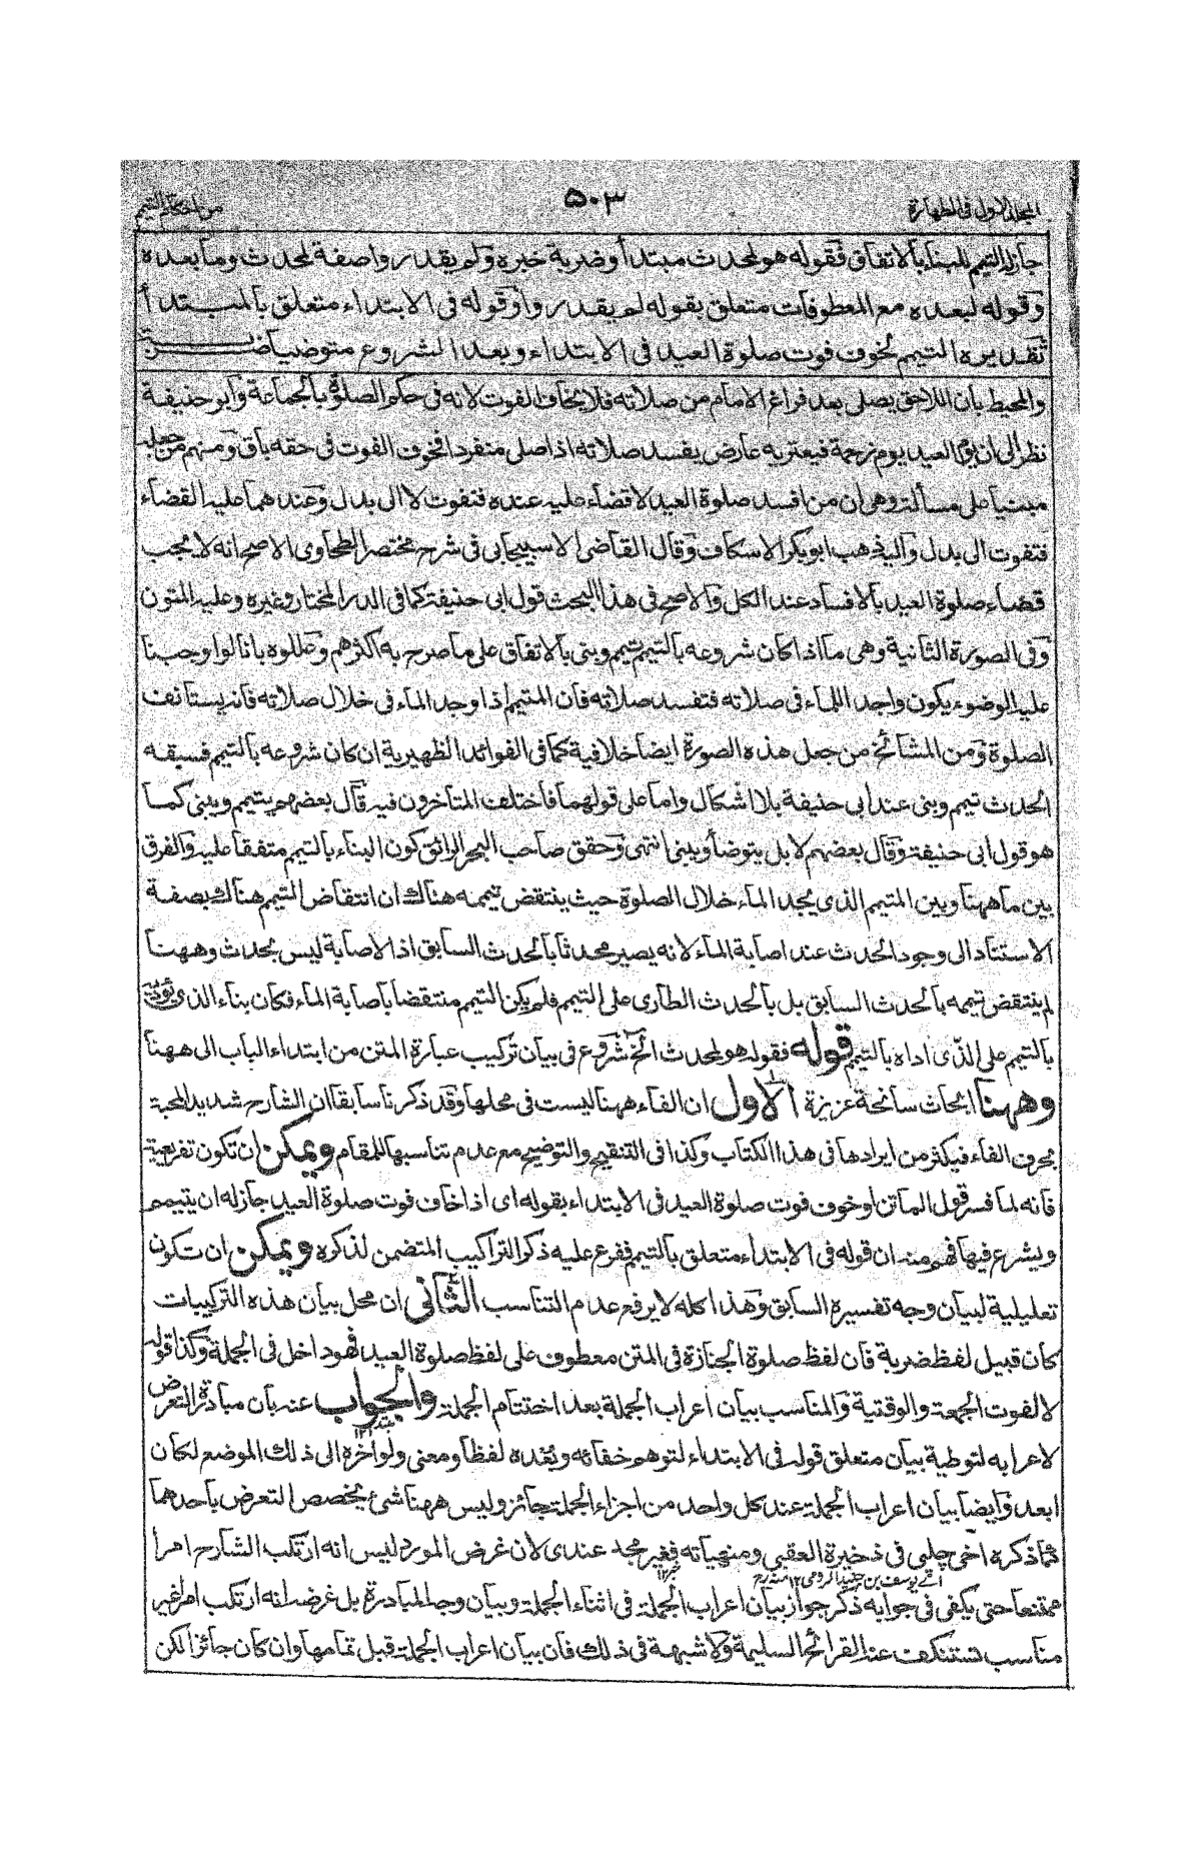 المجلد الاول في الطهارة
٥٠٣
من احكام التيمم
جاز له التيمم للبناء بالاتفاق فقوله هو لمحدث مبتدأ وضربة خبره ولم يقدر واصفة لمحدث وما بعده
وقوله لبعده مع المعطوفات متعلق بقوله لم يقدروا وقوله في الابتداء متعلق بالمبتدأ
تقديره التيمم لخوف فوت صلوة العيد في الابتداء وبعد الشروع متوضيا ضربة
والمحيط بان اللاحق يصلي بعد فراغ الامام من صلاته فلا يخاف الفوت لانه في حكم الصلوة بالجماعة وابو حنيفة
نظر الى ان يوم العيد يوم زحمة فيعتريه عارض يفسد صلاته اذا صلى منفردا فخوف الفوت في حقه باق ومنهم من جعله
مبنيا على مسألة وهي ان من افسد صلوة العيد لا قضاء عليه عنده فتفوت لا الى بدل وعندهما عليه القضاء
فتفوت الى بدل واليه ذهب ابو بكر الاسكاف وقال القاضي الاسبيجابي في شرح مختصر الطحاوي الاصح انه لا يجب
قضاء صلوة العيد بالافساد عند الكل والاصح في هذا البحث قول ابي حنيفة كما في الدر المختار وغيره وعليه المتون
وفي الصورة الثانية وهي ما اذا كان شروعه بالتيمم تيمم وبنى بالاتفاق على ما صرح به اكثرهم وعللوه بانا لو اوجبنا
عليه الوضوء يكون واجد اللماء في صلاته فتفسد صلاته فان المتيمم اذا وجد الماء في خلال صلاته فانه يستانف
الصلوة ومن المشائخ من جعل هذه الصورة ايضا خلافية كما في الفوائد الظهيرية ان كان شروعه بالتيمم فسبقه
الحدث تيمم وبنى عند ابي حنيفة بلا اشكال واما على قولهما فاختلف المتاخرون فيه قال بعضهم يتيمم ويبني كما
هو قول ابي حنيفة وقال بعضهم لا بل يتوضأ ويبني انتهى وحقق صاحب البحر الرائق كون البناء بالتيمم متفقا عليه والفرق
بين ما ههنا وبين المتيمم الذي يجد الماء خلال الصلوة حيث ينتقض تيممه هناك ان انتقاض التيمم هناك بصفة
الاستناد الى وجود الحدث عند اصابة الماء لانه يصير محدثا بالحدث السابق اذ الاصابة ليس بحدث وههنا
لم ينتقض تيممه بالحدث السابق بل بالحدث الطارى على التيمم فلم يكن التيمم منتقضا باصابة الماء فكان بناء الذي يؤديه
بالتيمم على الذي اداه بالتيمم قوله فقوله هو لمحدث الخ شروع في بيان تركيب عبارة المتن من ابتداء الباب الى ههنا
وههنا ابحاث سانحة عزيزة الاول ان الفاء ههنا ليست في محلها وقد ذكرنا سابقا ان الشارح شديد المحبة
بحرف الفاء فيكثر من ايرادها في هذا الكتاب وكذا في التنقيح والتوضيح مع عدم تناسبها للمقام ويمكن ان تكون تفريعية
فانه لما فسر قول الماتن او خوف فوت صلوة العيد في الابتداء بقوله اى اذا خاف فوت صلوة العيد جاز له ان يتيمم
ويشرع فيها فهم منه ان قوله في الابتداء متعلق بالتيمم ففرع عليه ذكر التراكيب المتضمن لذكره ويمكن ان تكون
تعليلية لبيان وجه تفسيره السابق وهذا كله لا يرفع عدم التناسب الثاني ان محل بيان هذه التركيبات
كان قبيل لفظ ضربة فان لفظ صلوة الجنازة في المتن معطوف على لفظ صلوة العيد فهو داخل في الجملة وكذا قوله
لا لفوت الجمعة والوقتية والمناسب بيان اعراب الجملة بعد اختتام الجملة والجواب عنه بان مبادرة التعرض
لاعرابه لتوطية بيان متعلق قوله في الابتداء لتوهم خفائه وبعده لفظا ومعنى ولو اخره الى ذلك الموضع لكان
ابعد وايضا بيان اعراب الجملة عند كل واحد من اجزاء الجملة جائز وليس ههنا شئ يخصص التعرض باحدهما
كما ذكره اخي چلپى في ذخيرة العقبى ومنهياته فغير مجد عندى لان غرض المورد ليس انه ارتكب الشارح امرا
اى يوسف بن جنيد الرومي ١٢ منه رح
ممتنعا حتى يكفي في جوابه ذكر جواز بيان اعراب الجملة في اثناء الجملة وبيان وجه المبادرة بل غرضه انه ارتكب امرا غير
مناسب تستنكف عنه القرائح السليمة ولا شبهة في ذلك فان بيان اعراب الجملة قبل تمامها وان كان جائزا لكن